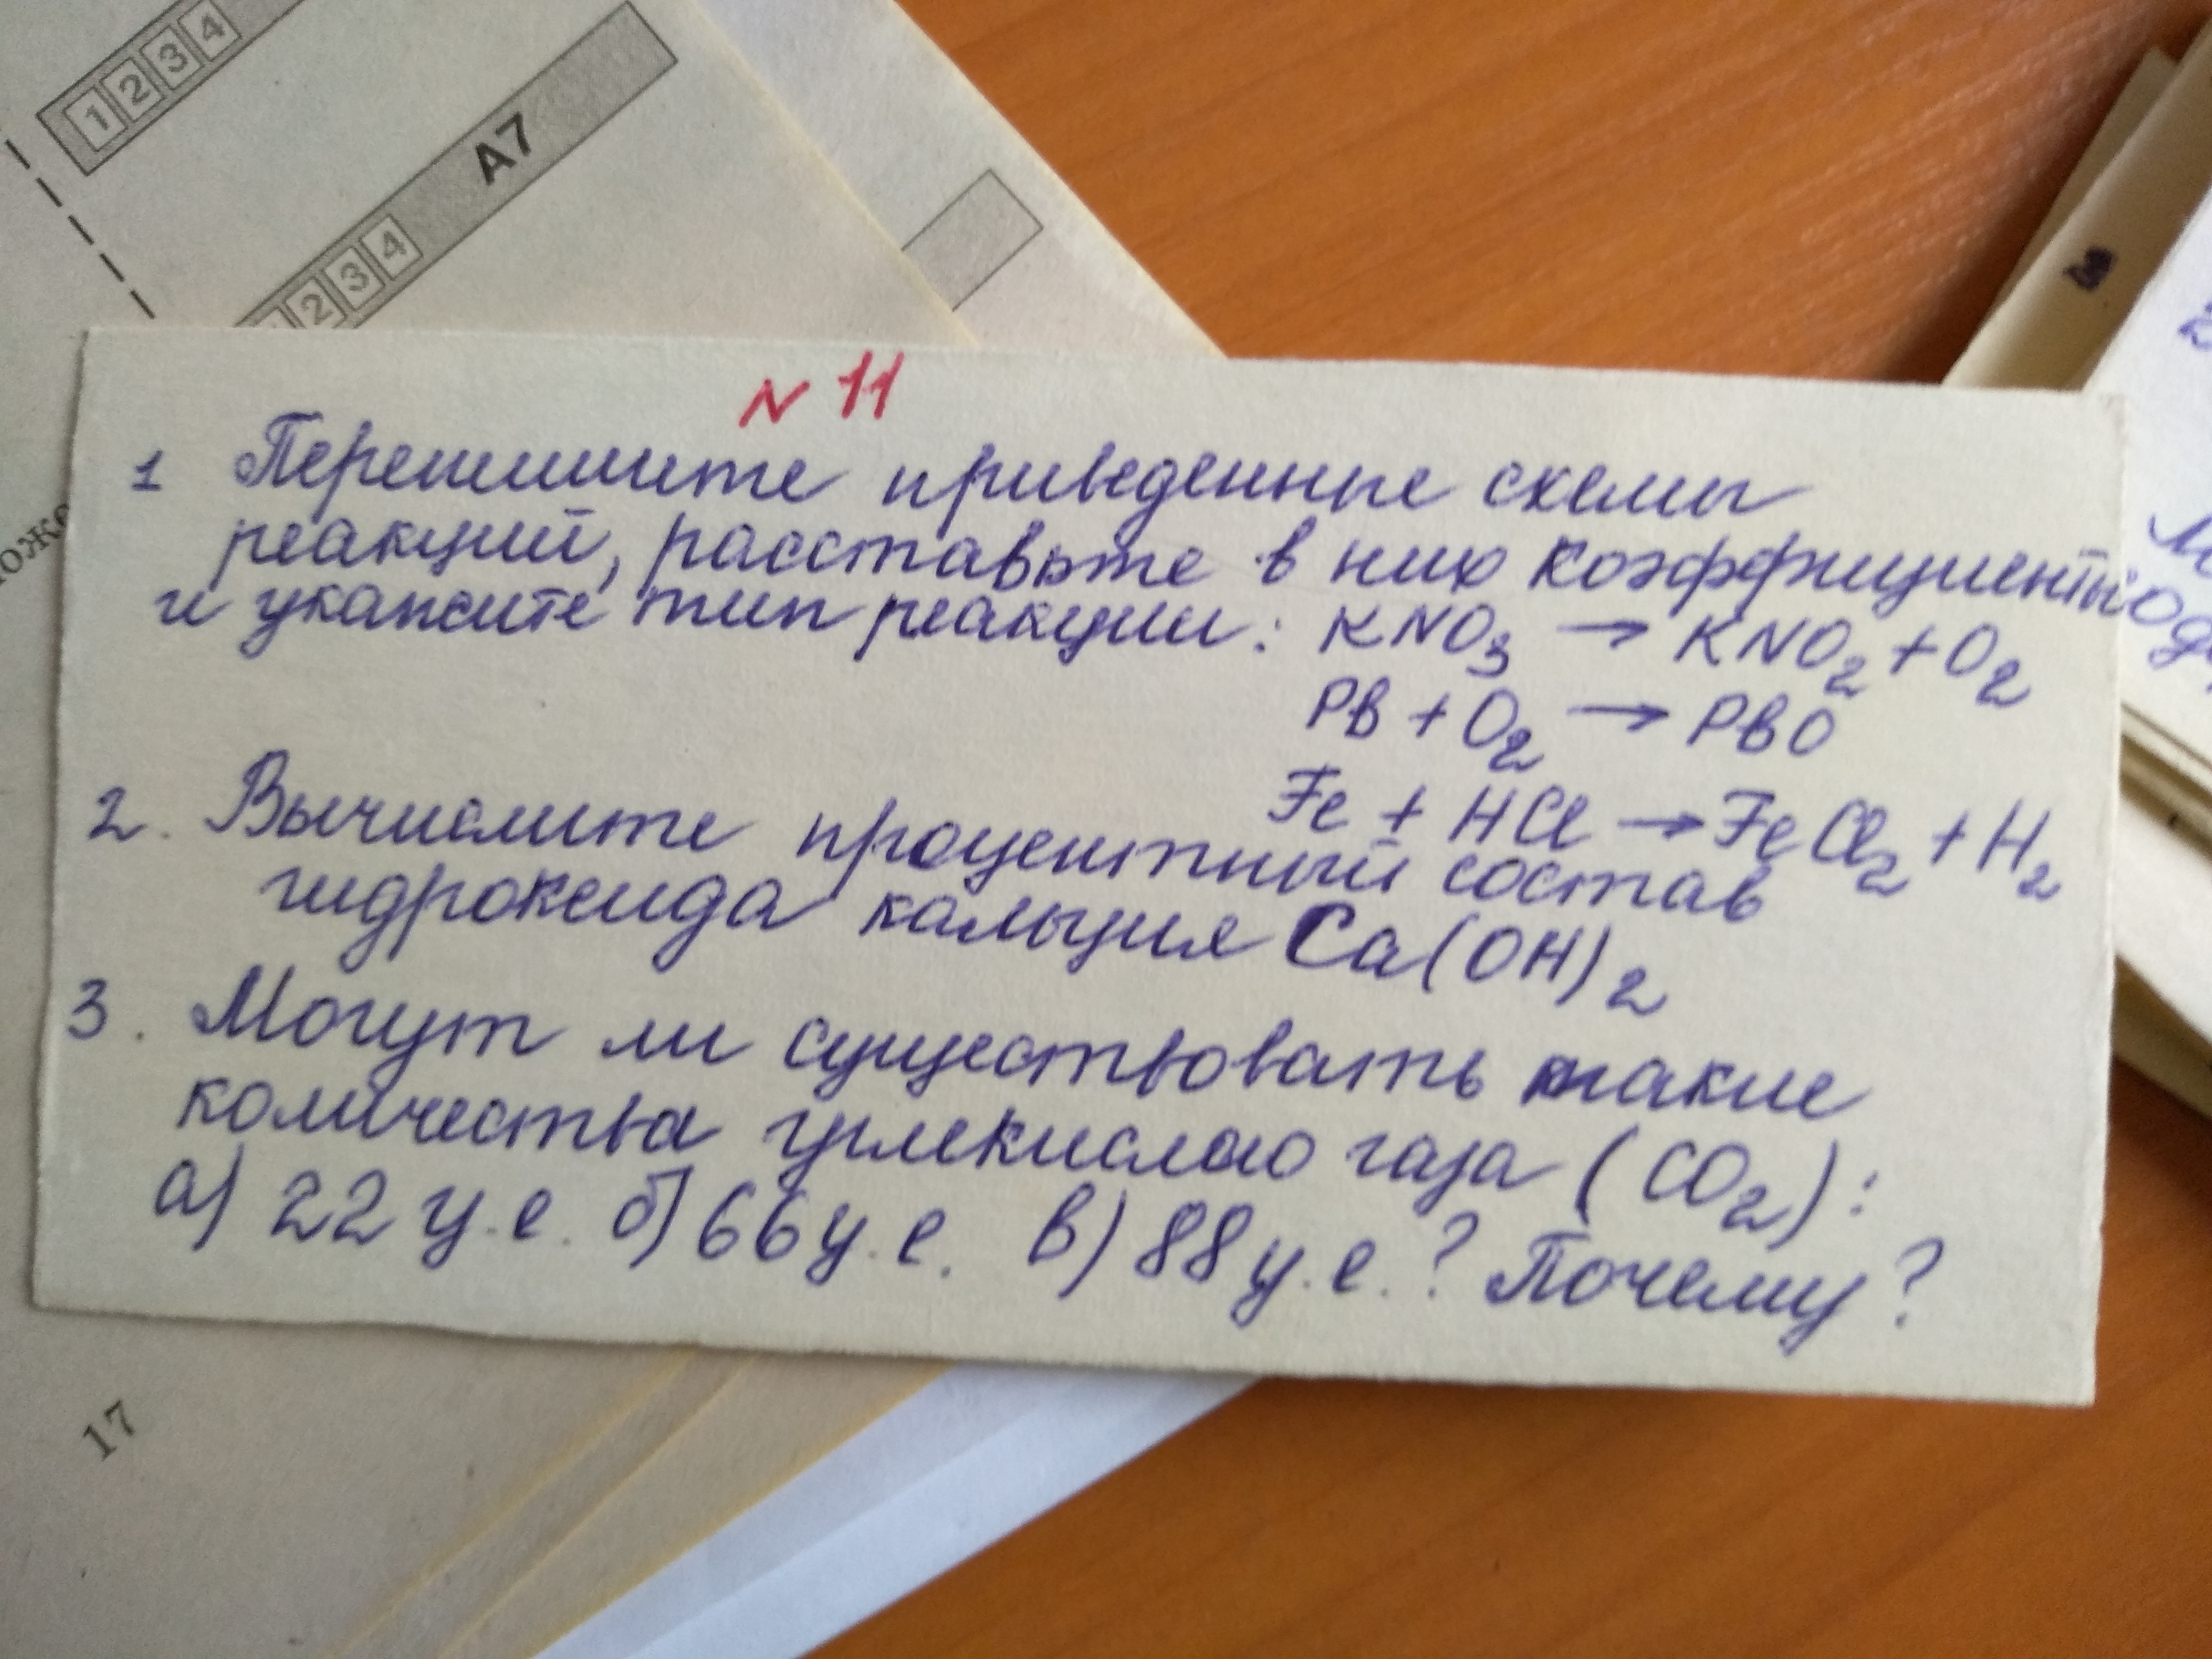 1 2 3 4
А7
2 3 4
N 11
1 Перепишите приведенные схемы
реакций, расставьте в них коэффициенты
и укажите тип реакции: KNO₃ → KNO₂ + O₂
Pb + O₂ → PbO
Fe + HCl → FeCl₂ + H₂
2. Вычислите процентный состав
гидроксида кальция Ca(OH)₂
3. Могут ли существовать такие
количества углекислого газа (CO₂):
а) 22 у.е. б) 66 у.е. в) 88 у.е.? Почему?
17